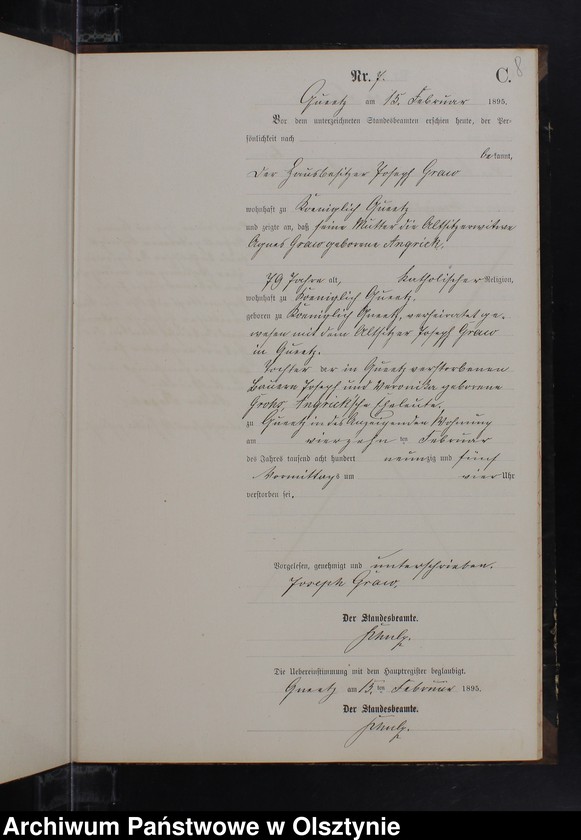 8
Nr. 7. C.
Queetz am 15. Februar 1895.
Vor dem unterzeichneten Standesbeamten erschien heute, der Per-
sönlichkeit nach
bekannt,
der Hausbesitzer Joseph Graw
wohnhaft zu Koeniglich Queetz
und zeigte an, daß seine Mutter die Altsitzerwitwe
Agnes Graw geborene Angrick.
79 Jahre alt, katholischer Religion,
wohnhaft zu Koeniglich Queetz.
geboren zu Koeniglich Queetz, verheiratet ge-
wesen mit dem Altsitzer Joseph Graw
in Queetz.
Tochter der in Queetz verstorbenen
Bauern Joseph und Veronika geborene
Angrick'sche Eheleute,
zu Queetz in des Anzeigenden Wohnung
am vierzehn ten Februar
des Jahres tausend acht hundert neunzig und fünf
Vormittags um vier Uhr
verstorben sei.
Vorgelesen, genehmigt und unterschrieben.
Joseph Graw.
Der Standesbeamte.
Die Uebereinstimmung mit dem Hauptregister beglaubigt.
Queetz am 15. ten Februar 1895.
Der Standesbeamte.
Archiwum Państwowe w Olsztynie